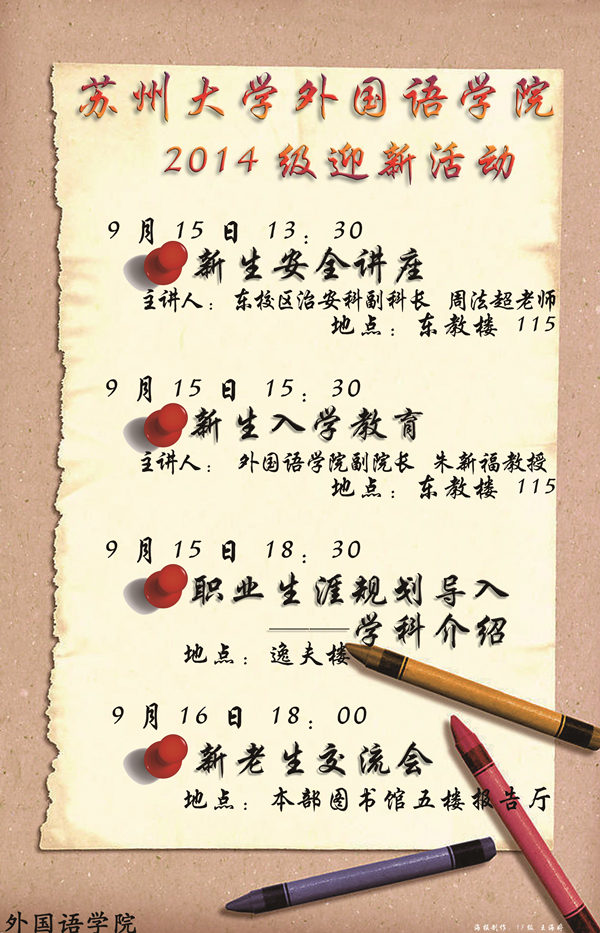 苏州大学外国语学院
2014级迎新活动
9月15日 13：30
新生安全讲座
主讲人：东校区治安科副科长 周法超老师
地点：东教楼 115
9月15日 15：30
新生入学教育
主讲人：外国语学院副院长 朱新福教授
地点：东教楼 115
9月15日 18：30
职业生涯规划导入
——学科介绍
地点：逸夫楼
9月16日 18：00
新老生交流会
地点：本部图书馆五楼报告厅
外国语学院